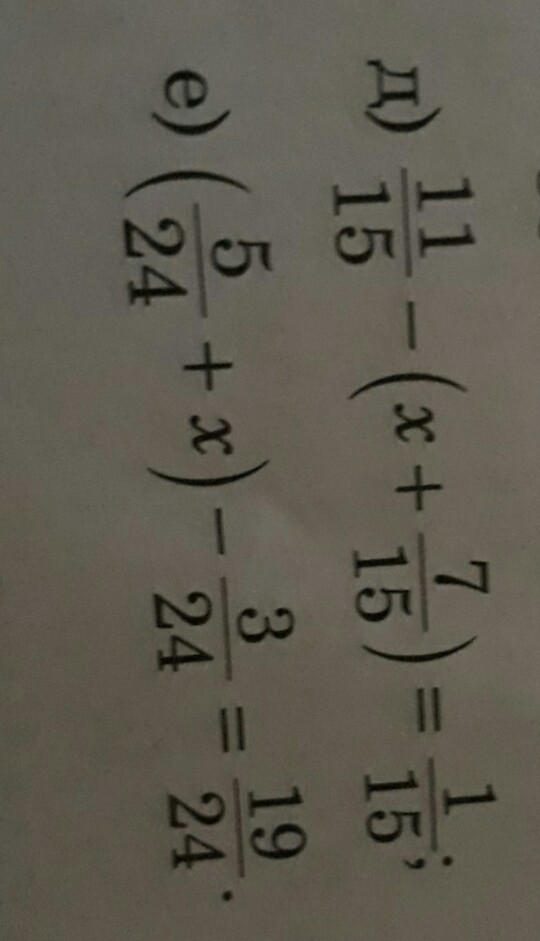 д) 11/15 − (x + 7/15) = 1/15;
е) (5/24 + x) − 3/24 = 19/24.